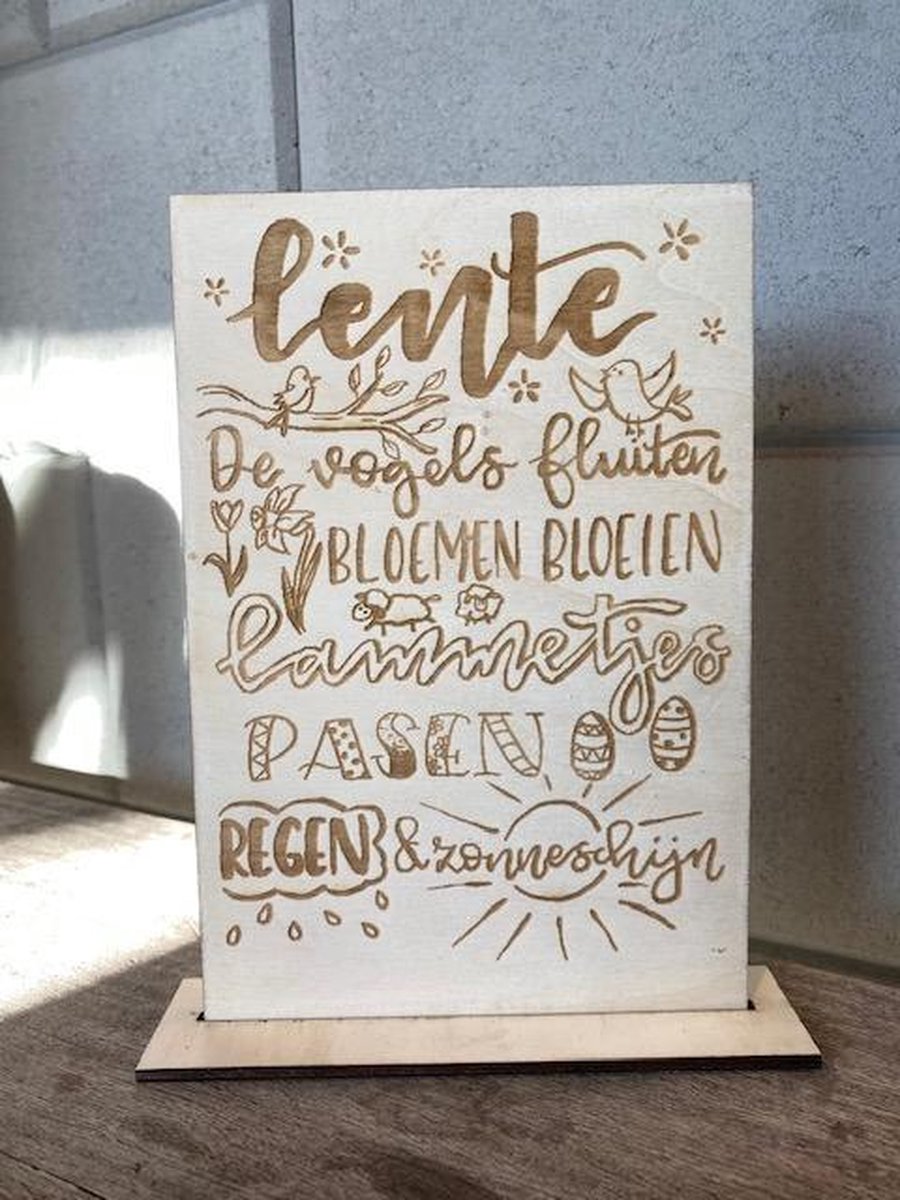 lente
De vogels fluiten
BLOEMEN BLOEIEN
lammetjes
PASEN
REGEN & zonneschijn